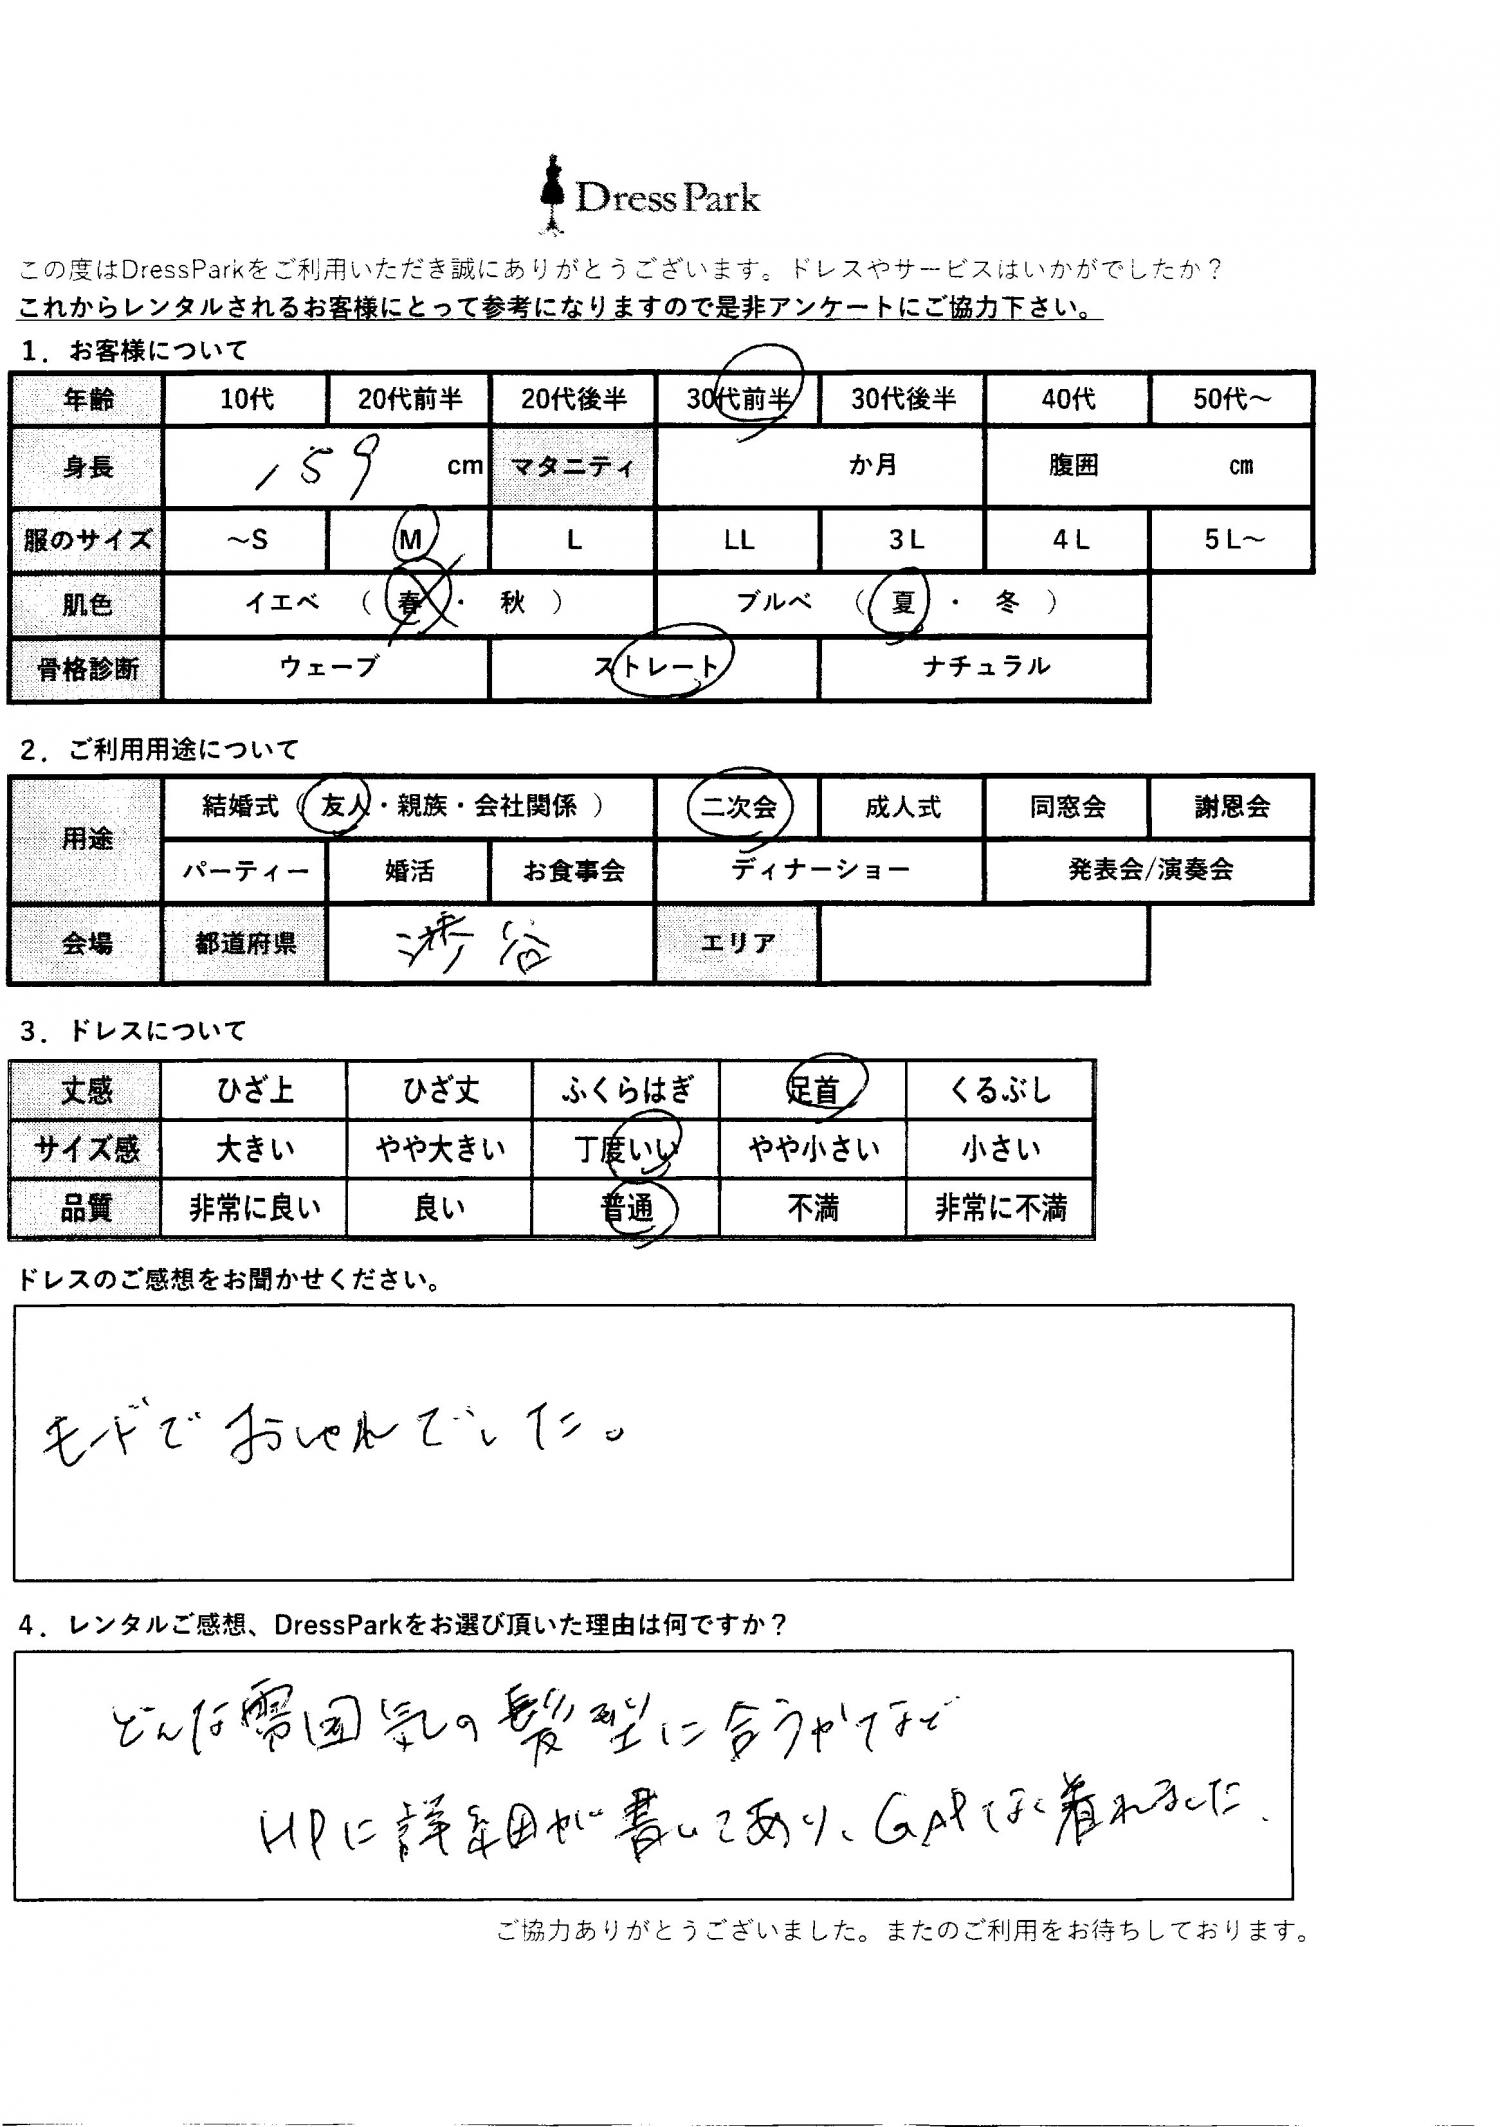 Dress Park
この度はDressParkをご利用いただき誠にありがとうございます。ドレスやサービスはいかがでしたか？
これからレンタルされるお客様にとって参考になりますので是非アンケートにご協力下さい。
1．お客様について
年齢 10代 20代前半 20代後半 30代前半 30代後半 40代 50代～
身長 159 cm マタニティ か月 腹囲 cm
服のサイズ ～S M L LL 3L 4L 5L～
肌色 イエベ （ 春 ・ 秋 ） ブルベ （ 夏 ・ 冬 ）
骨格診断 ウェーブ ストレート ナチュラル
2．ご利用用途について
用途 結婚式（ 友人・親族・会社関係 ） 二次会 成人式 同窓会 謝恩会
パーティー 婚活 お食事会 ディナーショー 発表会/演奏会
会場 都道府県 渋谷 エリア
3．ドレスについて
丈感 ひざ上 ひざ丈 ふくらはぎ 足首 くるぶし
サイズ感 大きい やや大きい 丁度いい やや小さい 小さい
品質 非常に良い 良い 普通 不満 非常に不満
ドレスのご感想をお聞かせください。
モードでおしゃれでした。
4．レンタルご感想、DressParkをお選び頂いた理由は何ですか？
どんな雰囲気の髪型に合うかなど
HPに詳細が書いてあり、GAPなく着れました、
ご協力ありがとうございました。またのご利用をお待ちしております。